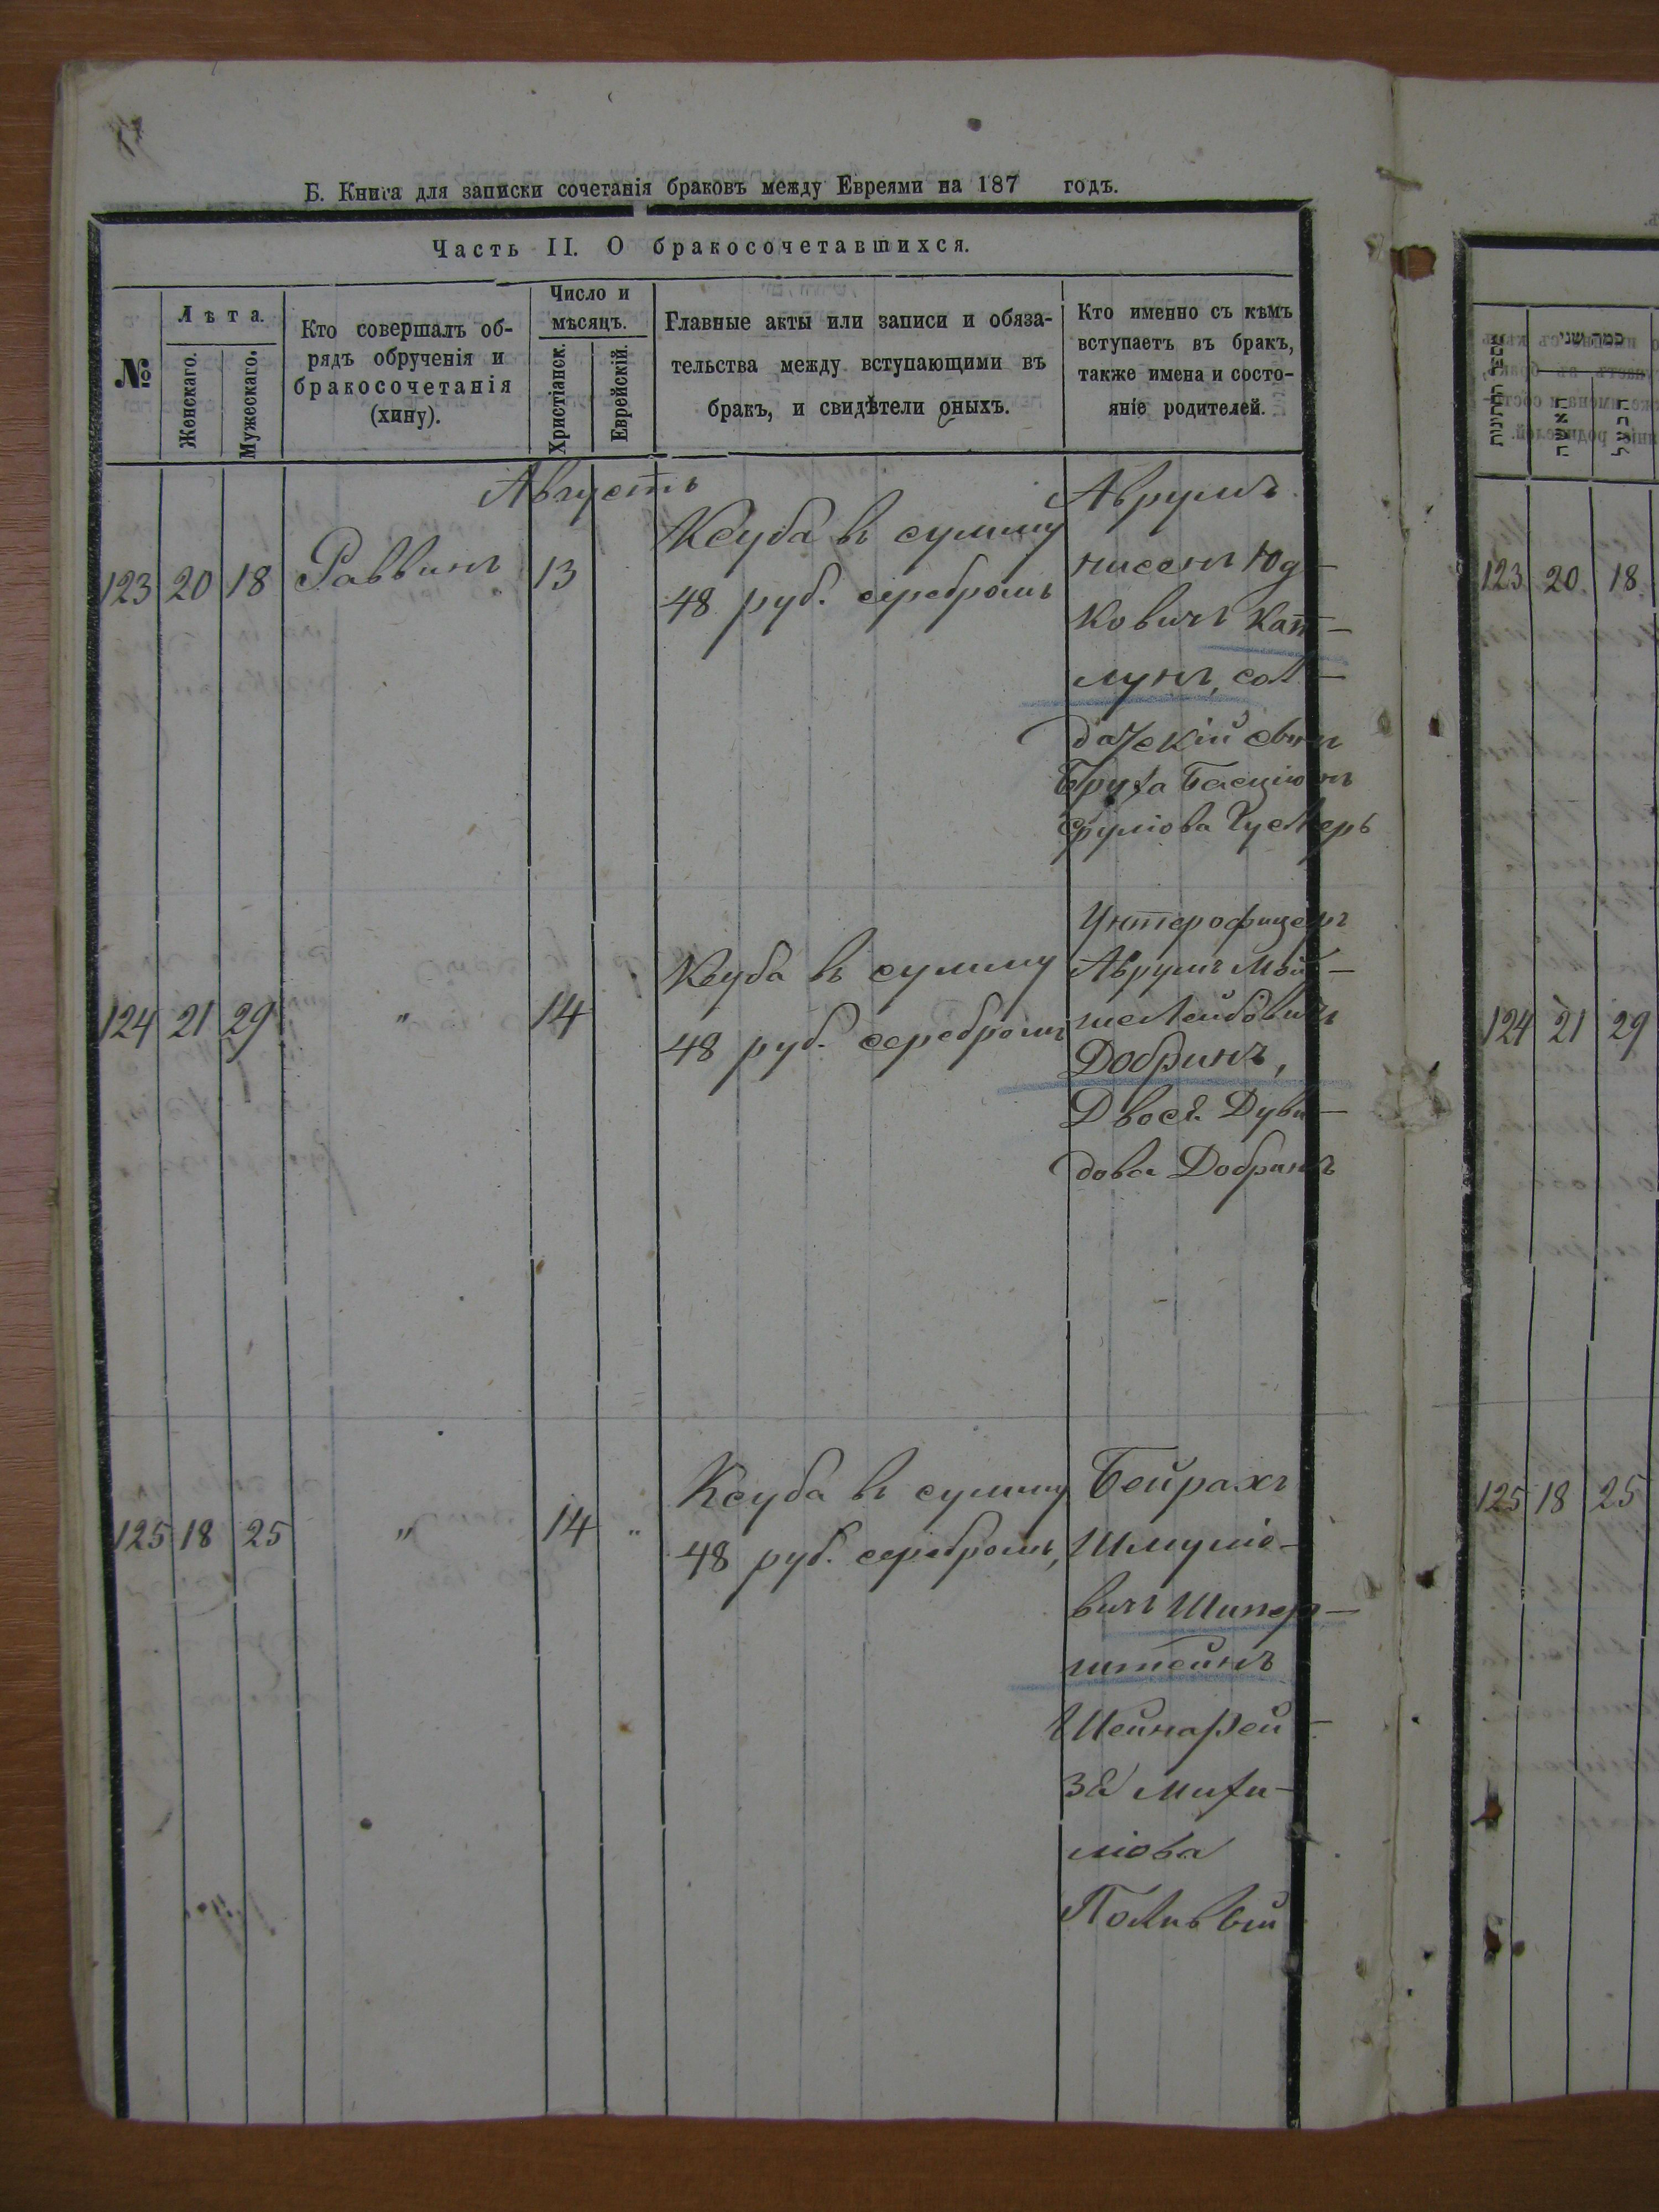 Б. Книга для записки сочетанія браковъ между Евреями на 187 годъ.
Часть II. О бракосочетавшихся.
№
Лѣта.
Женскаго.
Мужескаго.
Кто совершалъ об-
рядъ обрученія и
бракосочетанія
(хину).
Число и
мѣсяцъ.
Христіанск.
Еврейскій.
Главные акты или записи и обяза-
тельства между вступающими въ
бракъ, и свидѣтели оныхъ.
Кто именно съ кѣмъ
вступаетъ въ бракъ,
также имена и состо-
яніе родителей.
Августъ
123 20 18 Раввинъ 13
Ксуба въ сумму
48 руб. серебромъ
Аврумъ
нисенъ Юд-
ковичъ Кап-
лунъ, сол-
датскій сынъ
Бруха Басціонъ
Сруліова
124 21 29 " 14
Ксуба въ сумму
48 руб. серебромъ
Унтерофицеръ
Аврумъ Мой-
шелейбовичъ
Добринъ,
Двося Дуви-
дова Добринъ
125 18 25 " 14 "
Ксуба въ сумму
48 руб. серебромъ,
Бейрахъ
Шмуліо-
вичъ Шипер-
штейнъ
Шейнарей-
за Михи-
ліова
מספר החתונות
כמה שני
האשה
הבעל
123 20. 18.
124 21 29
125 18 25